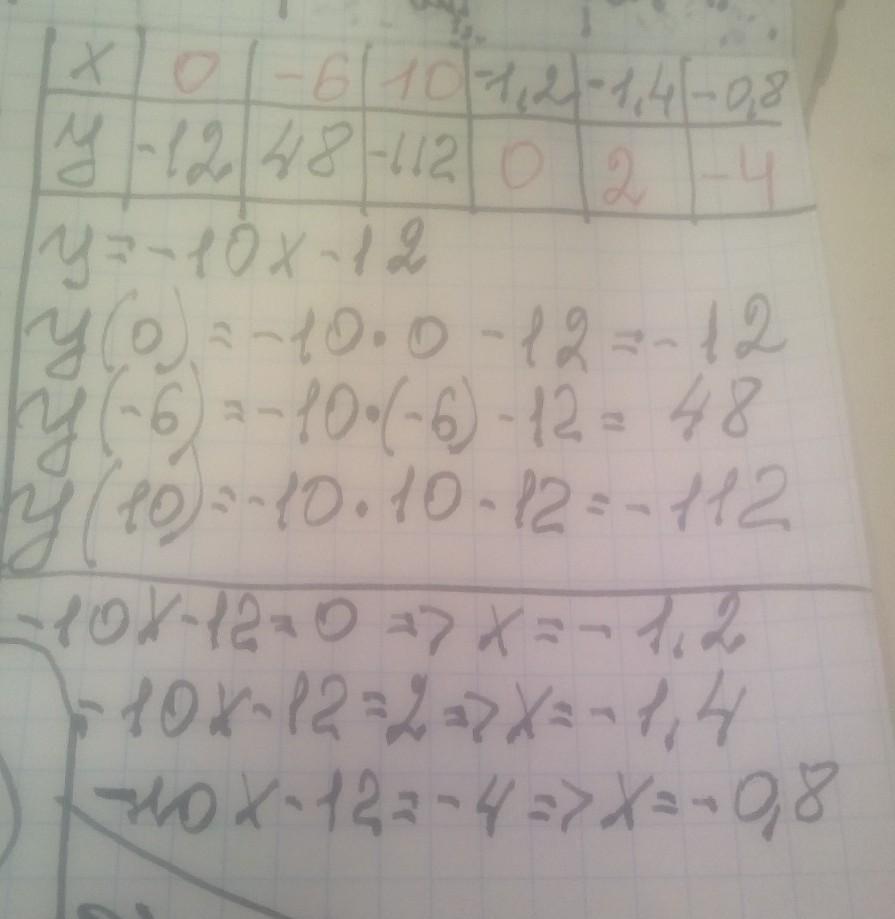 x 0 -6 10 -1,2 -1,4 -0,8
y -12 48 -112 0 2 -4
y=-10x-12
y(0)=-10·0-12=-12
y(-6)=-10·(-6)-12=48
y(10)=-10·10-12=-112
-10x-12=0=>x=-1,2
-10x-12=2=>x=-1,4
-10x-12=-4=>x=-0,8